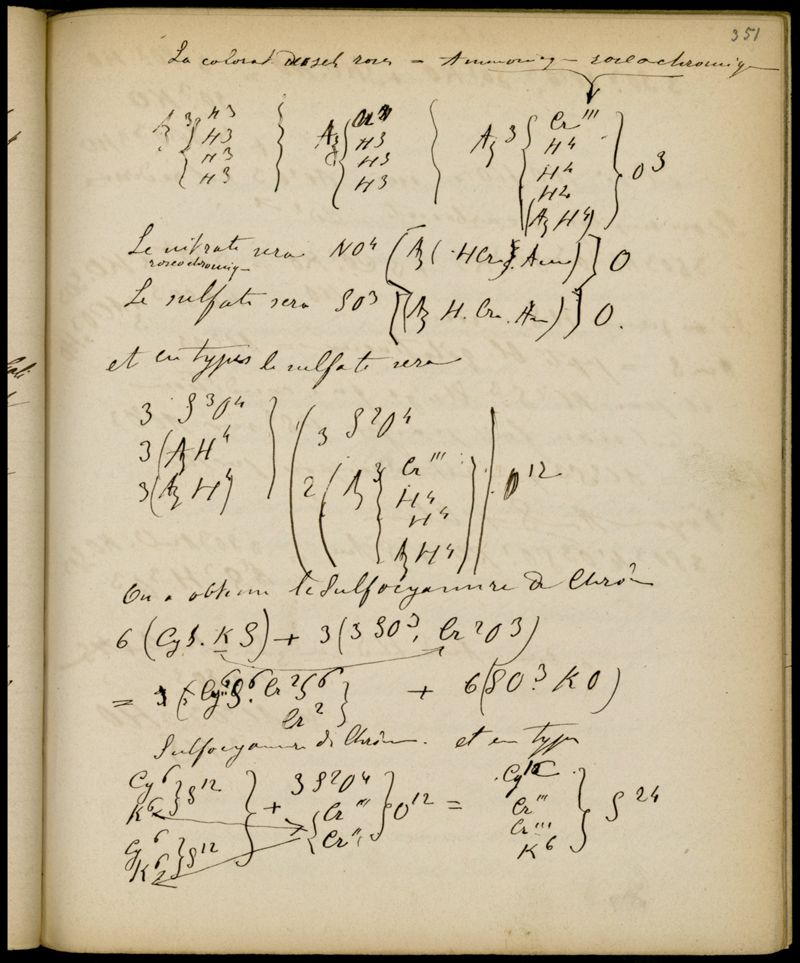 351
La colorat des sels roses = Ammoniq - roseochromiq
Az 3 { H3 H3 H3 H3 } Az { H3 H3 H3 } Az 3 { Cr''' H4 H4 H2 (Az H4) } O3
Le nitrate sera NO4 (Az ( H Cr . Am) } O
roseochromiq
Le sulfate sera SO3 { (Az H. Cr. Am) } O.
et en types le sulfate sera
3 S2O4
3 S3O4
3 (Az H4
3 (Az H4)
2 ( Az 3 { Cr''' H4 H4 Az H4 ) O12
On a obtenu le Sulfocyanure de Chrôm
6 (CyS. K S) + 3 (3 SO3, Cr2O3)
= Cy6 S6. Cr2 S6 } + 6 (SO3. K O)
Cr2
Sulfocyanure de Chrôm. et en type
Cy6 K6 } S12 + 3 S2O4 Cr''' Cr''' } O12 = Cy12 Cr''' Cr''' K6 } S24
Cy6 K6 } S12